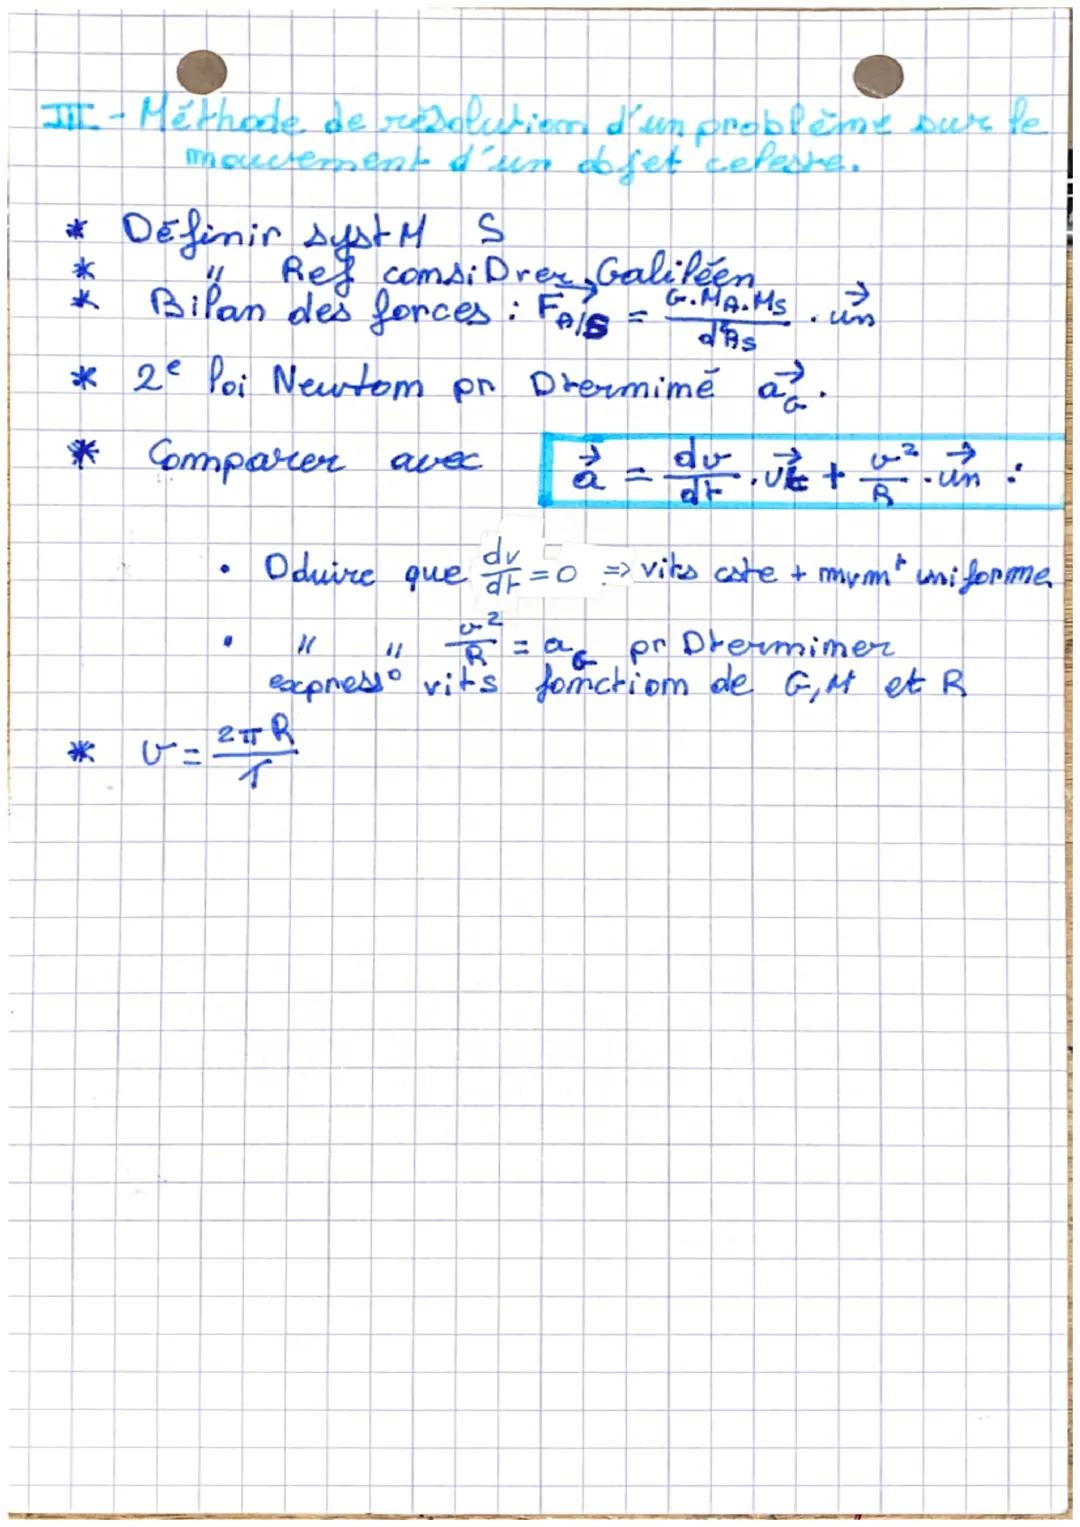 III - Méthode de résolution d'un problème sur le
mouvement d'un objet celeste.
* Définir syst M S
* " Ref consiDrer Galiléen
* Bilan des forces : F⃗A/S = G.MA.MS / d²AS . un⃗
* 2e loi Newton pr Dtermimé aG⃗.
* Comparer avec a⃗ = dv/dt . ut⃗ + v²/R . un⃗ :
• Dduire que dv/dt = 0 => vits cste + mvmt uniforme
• " " v²/R = aG pr Dtermimer
express° vits fonction de G, M et R
* v = 2πR/T